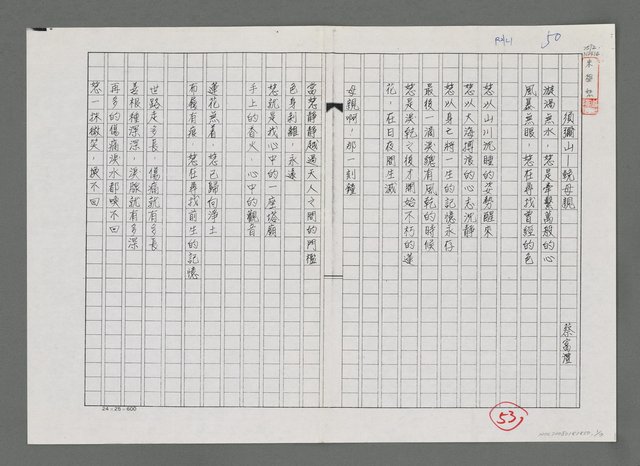 50
須彌山—致母親
蔡富澧
漩渦無水，您是牽繫萬般的心
風暴無眼，您在再找曾經的色
您以山川沉睡的姿勢醒來
您以大海搏浪的心志沉靜
您以身之將一生的記憶永存
最後一滴淚總有風乾的時候
您是淚乾之後才開始不朽的蓮
花，在日夜間生滅
母親啊，那一刻鐘
當您靜靜越過天人之間的門檻
色身剎離，永遠
您就是我心中的一座塔廟
手上的香火，心中的觀音
蓮花無着，您已歸向淨土
而履有痕，您在再找前生的記憶
世路走多長，傷痛就有多長
差根種深深，淚腺就有多深
再多的傷痛淚水都喚不回
您一抹微笑，喚不回
24×25=600
53